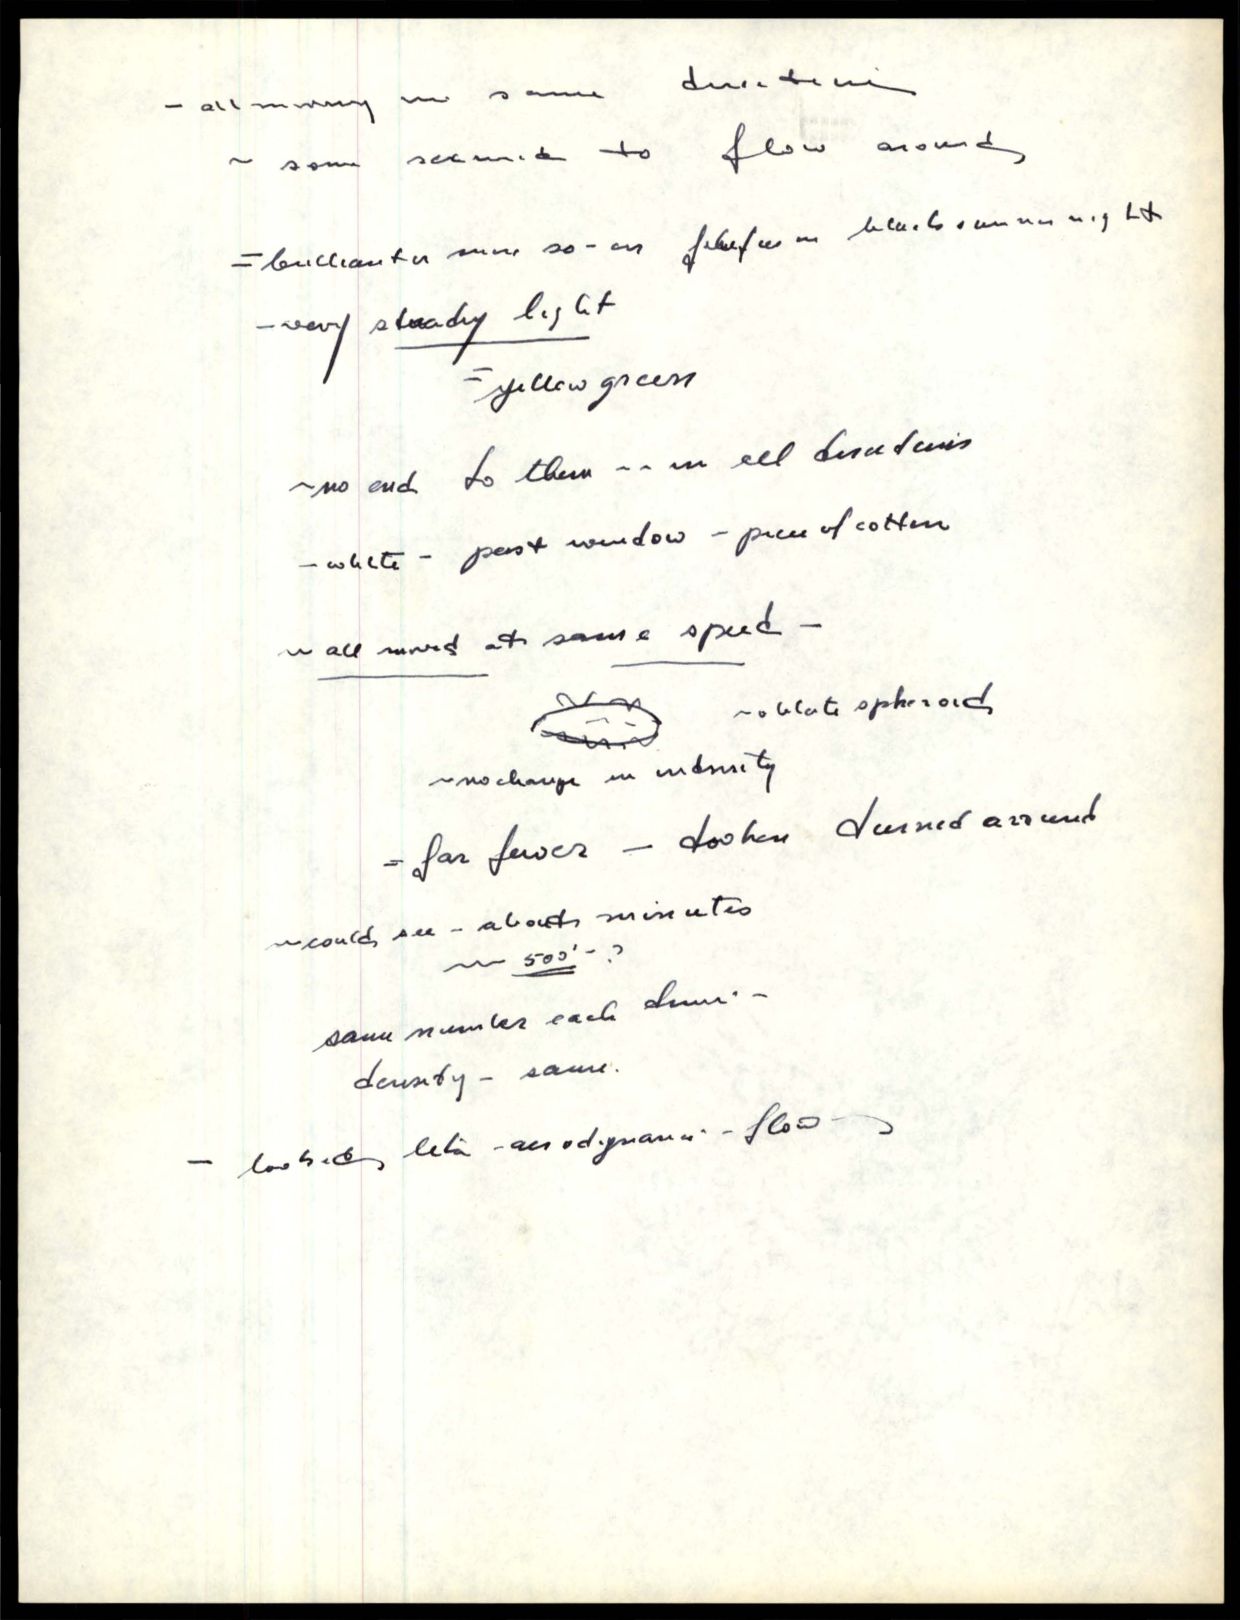 - all moving in same direction
~ some seemed to flow around
= brilliant or more so - as on black summer night
- very steady light
= yellow green
~ no end to them -- in all directions
- white - past window - piece of cotton
~ all moved at same speed -
~ oblate spheroid
~ no change in intensity
= far fewer - when turned around
~ could see - about minutes
~~ 500' - ?
same number each time -
density - same.
- looked like - aerodynamic - flow